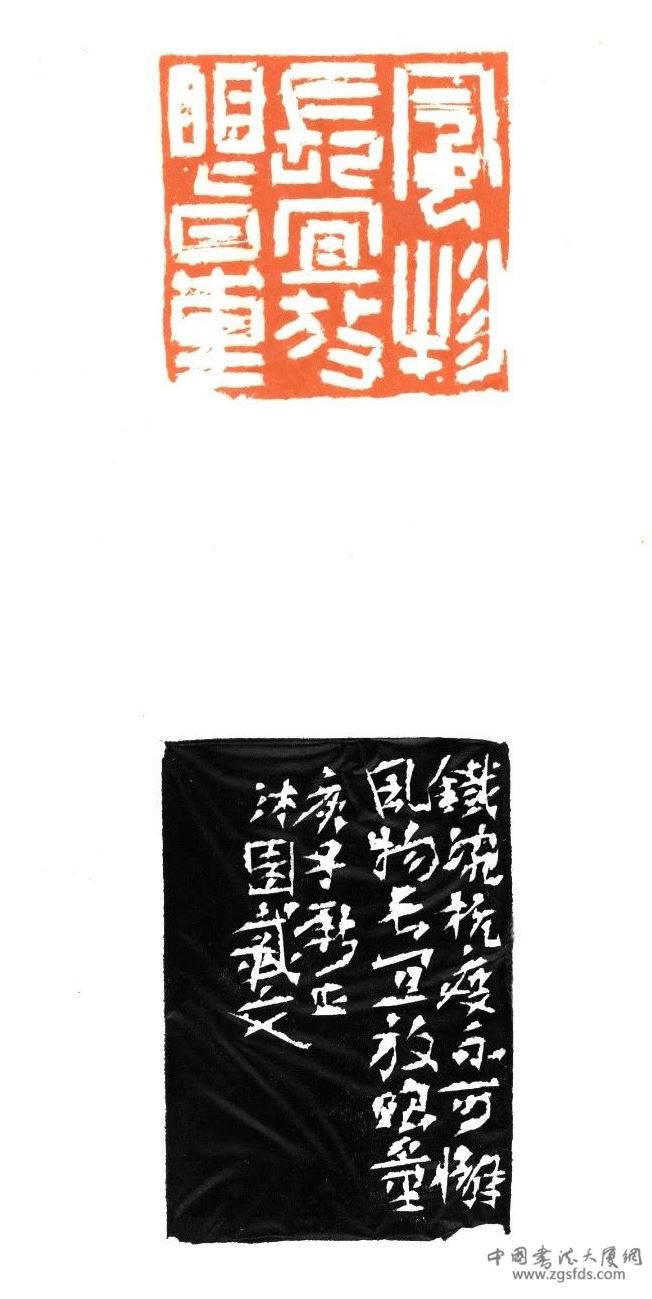 風物
長宜放
眼量
鐵腕抗疫不可懈
風物长宜放眼量
庚子新正
沐園戴文
中國書法大廈網
www.zgsfds.com